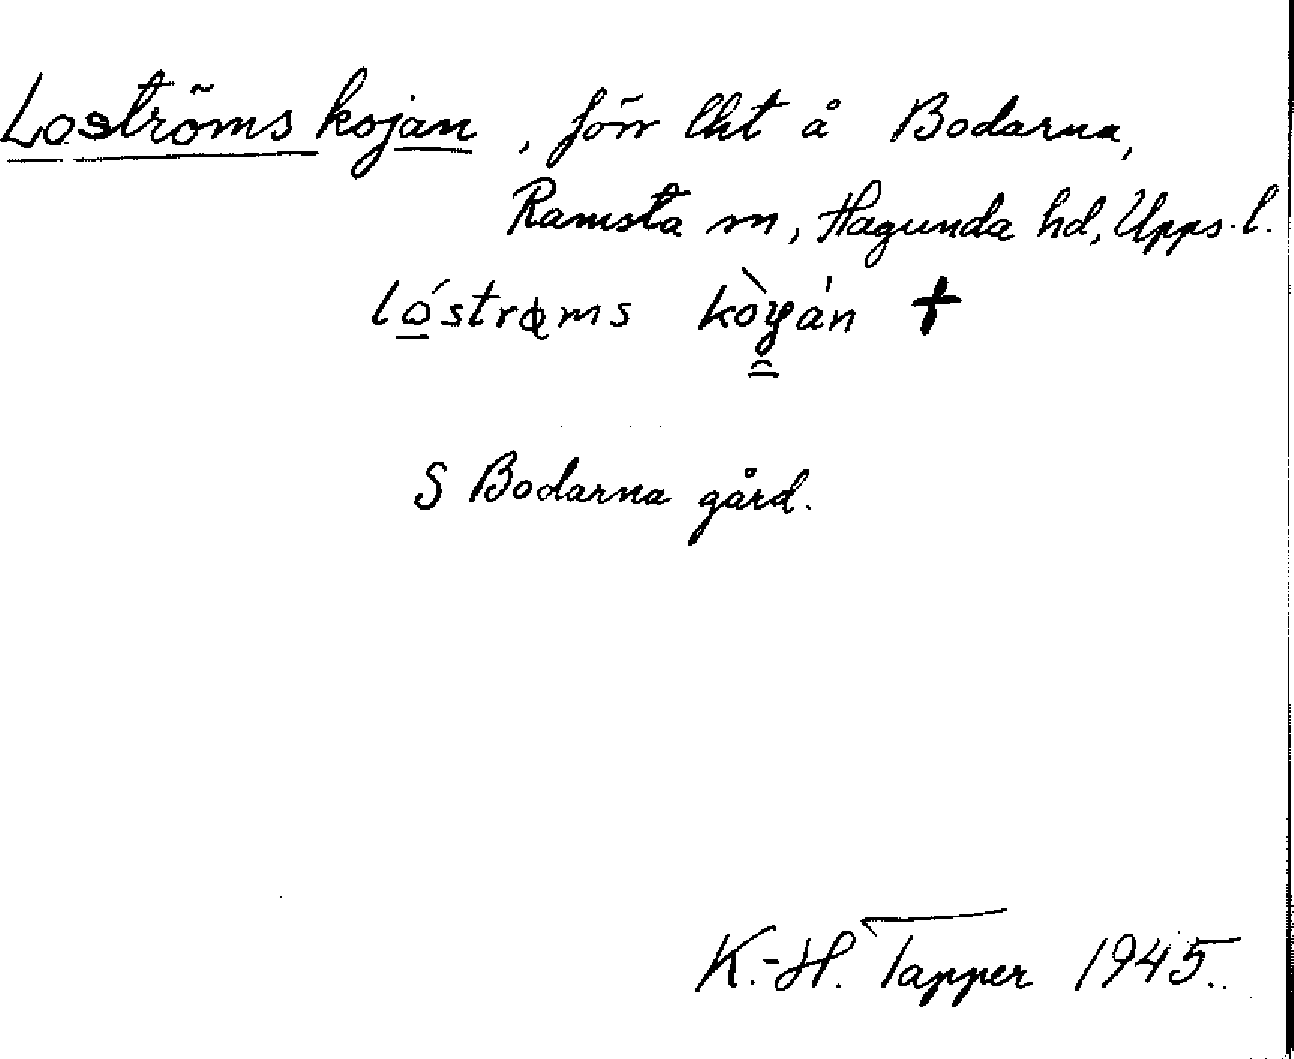 Loströms kojan, förr lht å Bodarna,
Ramsta sn, Hagunda hd, Upps. l.
S Bodarna gård.
K.-H. Tapper 1945.